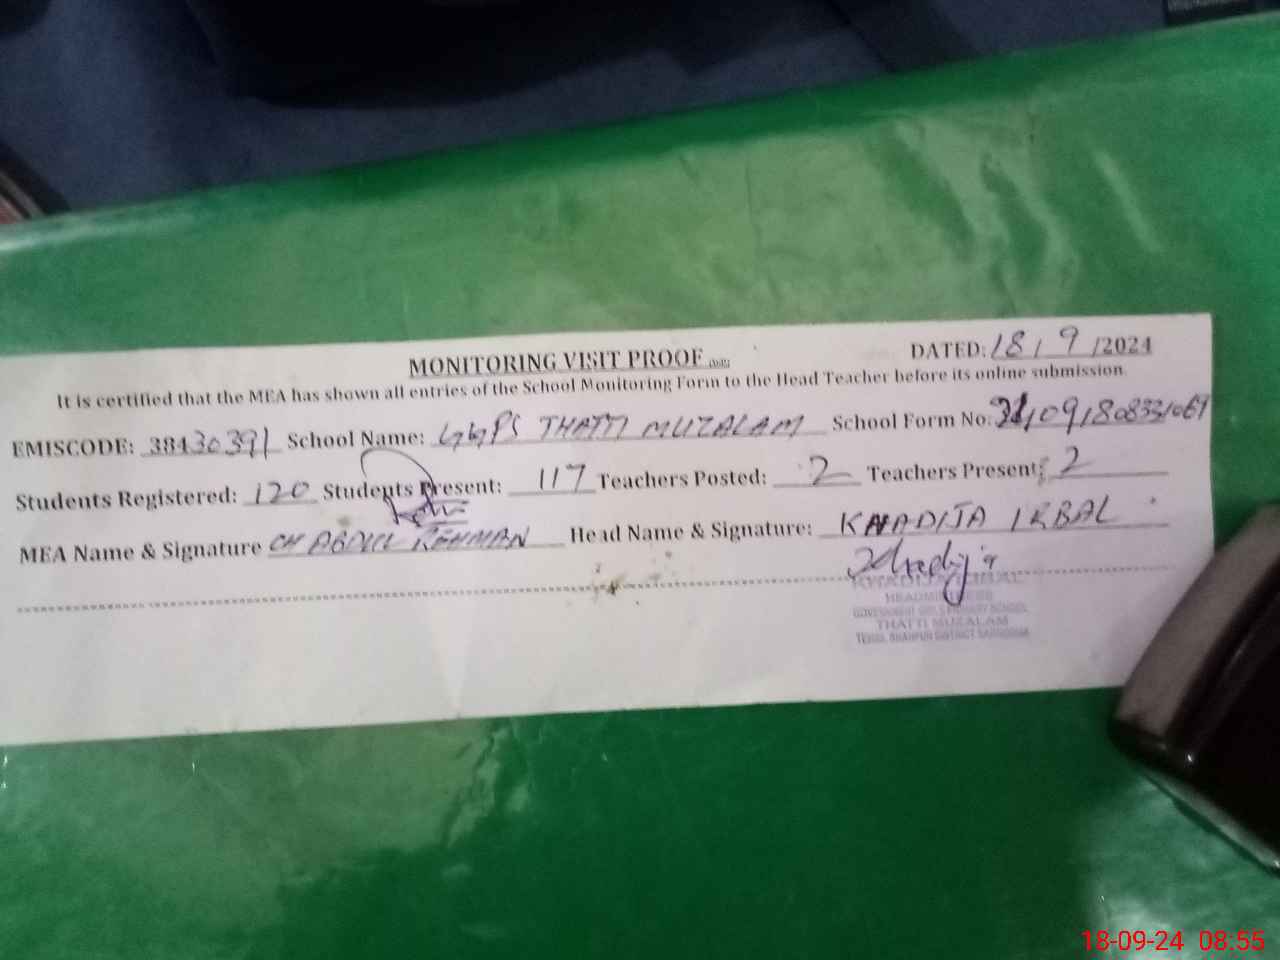 MONITORING VISIT PROOF
DATED: 18/9/2024
It is certified that the MEA has shown all entries of the School Monitoring Form to the Head Teacher before its online submission.
EMISCODE: 38430391 School Name: GGPS THATTI MUZALAM School Form No:
Students Registered: 120 Students Present: 117 Teachers Posted: 2 Teachers Present: 2
MEA Name & Signature CH ABDUL REHMAN Head Name & Signature: KHADIJA IKBAL
Khadija
KHADIJA IQBAL
HEADMISTRESS
GOVERNMENT GIRLS PRIMARY SCHOOL
THATTI MUZALAM
TEHSIL SHAHPUR DISTRICT SARGODHA
18-09-24 08:55